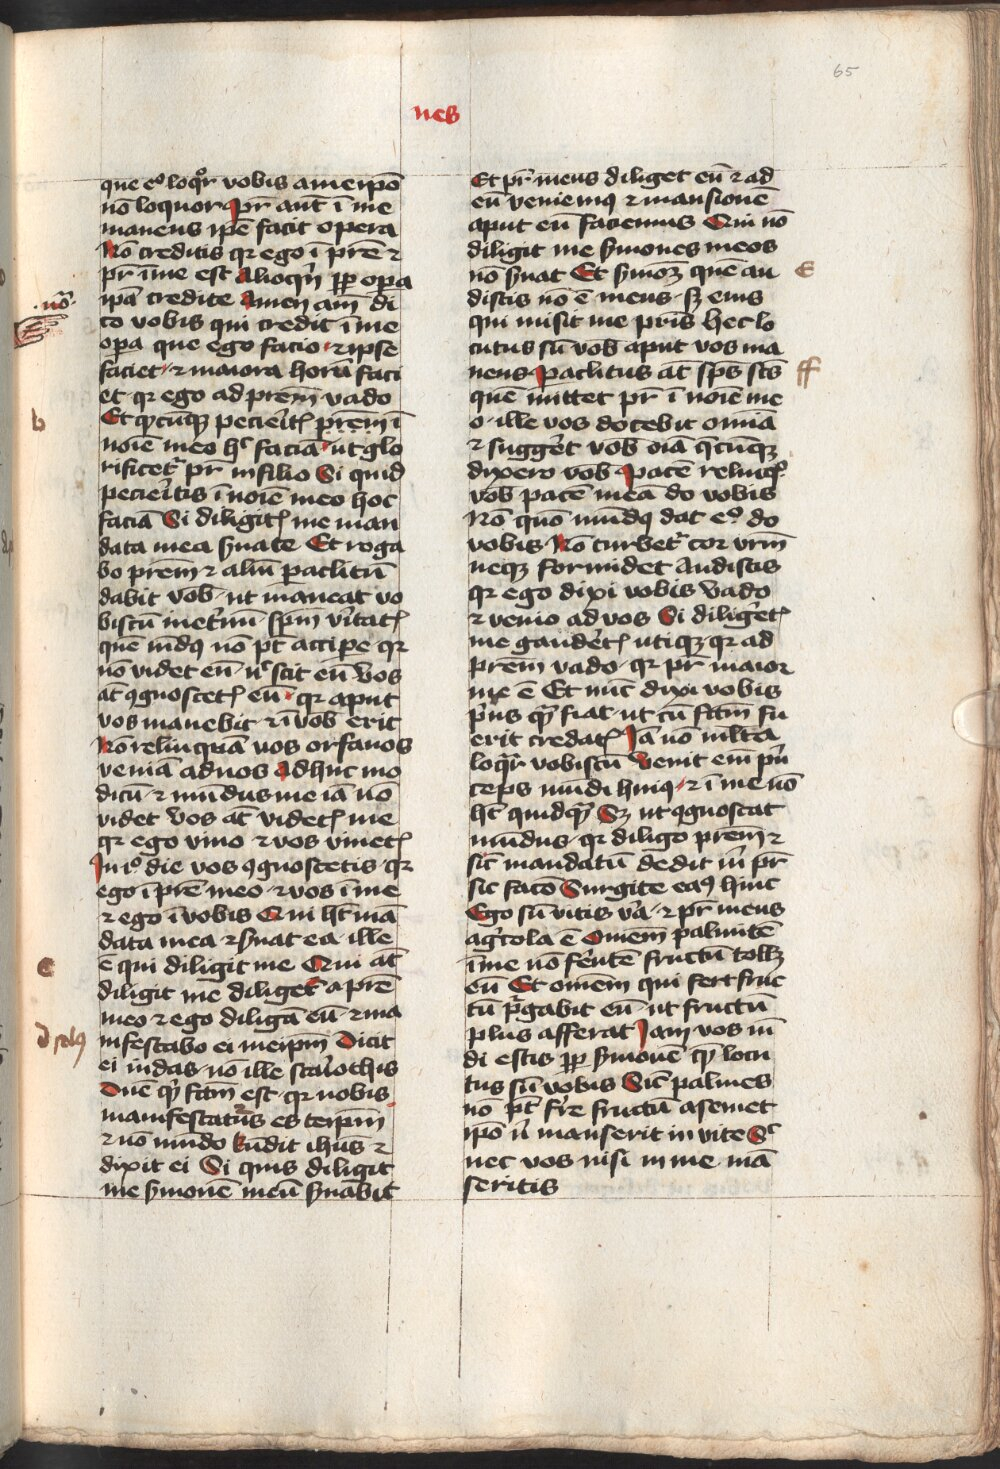 65
nes
que eͦ loqͦr vobis a meip̄o
nō loquor Pr̄ aut̄ ī me
manens ip̄e facit opera
Nō creditis qꝛ ego ī pr̄e ⁊
pr̄ ī me est Alioqͥn ꝓꝑ oꝑa
ip̄a credite Amen am̄ di
co vobis qui credit ī me
oꝑa que ego facio ⁊ ipse
faciet ⁊ maiora horū faci
et qꝛ ego ad prēm vado
Et qͦcūqꝫ pecieritꝭ prēm ī
noīe meo hͨ faciā ut glo
rificetᷣ pr̄ in filio Si quid
pecieritis ī noīe meo hoc
faciā Si diligitꝭ me man
data mea ẜuate Et roga
bo prēm ⁊ aliū ꝑaclitū
dabit vob̄ ut maneat vo
biscū inet̄nū sp̄m v̓itatꝭ
quē mūdꝰ nō pt̄ accipe qꝛ
nō videt eū nͨ scit eū Vos
at̄ ꝯgnoscetꝭ eū qꝛ aput
vos manebit ⁊ ī vob̄ erit
Nō relinquā vos orfanos
veniā ad uos Adhuc mo
dicū ⁊ mūdus me iā nō
videt Vos at̄ videtꝭ me
qꝛ ego viuo ⁊ vos viuetꝭ
In iͦ die vos ꝯgnoscetis qꝛ
ego ī pr̄e meo ⁊ vos ī me
⁊ ego ī vobis Qui hꝫ mā
data mea ⁊ ẜuat ea ille
ē qui diligit me Qui at̄
diligit me diliget̉ a pr̄e
meo ⁊ ego diligā eū ⁊ ma
nifestabo ei meip̄m Dicit
ei iudas nō ille scariothis
Dn̄e qͥd f̄tm est qꝛ nobis
manifestaturus es teip̄m
⁊ nō mūdo Rn̄dit ihūs ⁊
dixit ei Si quis diligit
me ẜmonē meū ẜuabit
Et pr̄ meus diliget eū ⁊ ad
eū veniemꝰ ⁊ mansionē
aput eū faciemus Qui nō
diligit me ẜmones meos
nō ẜuat Et ẜmoꝫ quē au
distis nō ē meus sꝫ eius
qui misit me pr̄is Hec lo
cutus sū vob̄ aput vos ma
nens Paclitus at̄ sp̄s sc̄s
quē mittet pr̄ ī noīe me
o ille vos docebit omīa
⁊ suggeret vob̄ oīa qͨcūqꝫ
dixero vob̄ Pacē relinqͦ
vob̄ pacē meā do vobis
Nō quō mūdꝰ dat eͦ do
vobis Nō turbetᷣ cor vr̄m
neqꝫ formidet Audistis
qꝛ ego dixi vobis Vado
⁊ venio ad vos Si diligeretꝭ
me gauderetꝭ utiqꝫ qꝛ ad
prēm vado qꝛ pr̄ maior
me ē Et nūc dixi vobis
pͥus qͣꝫ fiat ut cū f̄tm fu
erit credatꝭ Iā nō ml̄ta
loqͣr vobiscū Venit em̄ pͥn
ceps mūdi huiꝰ ⁊ ī me nō
hꝫ quidqͣꝫ Sꝫ ut ꝯgnoscat
mūdus qꝛ diligo prēm ⁊
sic̄ mandatū dedit m̄ pr̄
sic facō Surgite eaꝰ hinc
Ego sū vitis v̓a ⁊ pr̄ meus
agͥcola ē Omēm palmitē
ī me nō ferentē fructū tollꝫ
eū Et omēm qui fert fruc
tū pͥgabit eū ut fructū
plus afferat Iam vos mū
di estis ꝓꝑ ẜmonē qͣꝫ locu
tus sū vobis Sic̄ palmes
nō pt̄ fr̄e fructū a semet
ip̄o nͥ manserit in vite Sͨ
nec vos nisi in me mā
seritis
nō
b
c
d
E
ff